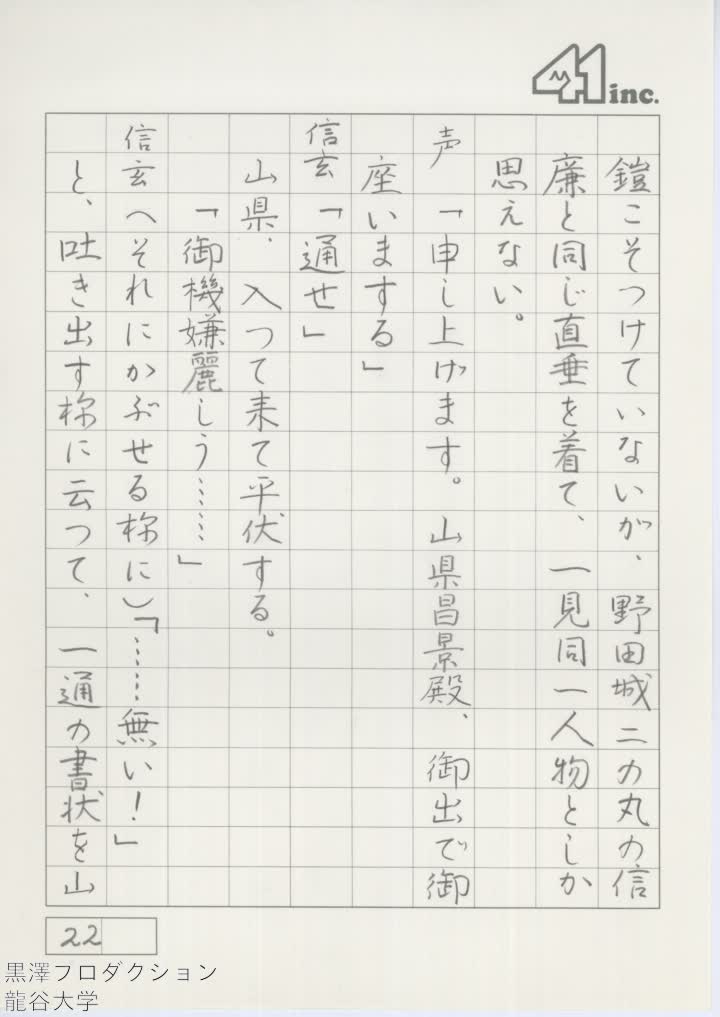 41 inc.
鎧こそつけていないが、野田城二の丸の信
廉と同じ直垂を着て、一見同一人物としか
思えない。
声「申し上げます。山県昌景殿、御出で御
座いまする」
信玄「通せ」
山県、入つて来て平伏する。
「御機嫌麗しう……」
信玄(それにかぶせる様に)「……無い!」
と、吐き出す様に云つて、一通の書状を山
22
黒澤プロダクション
龍谷大学